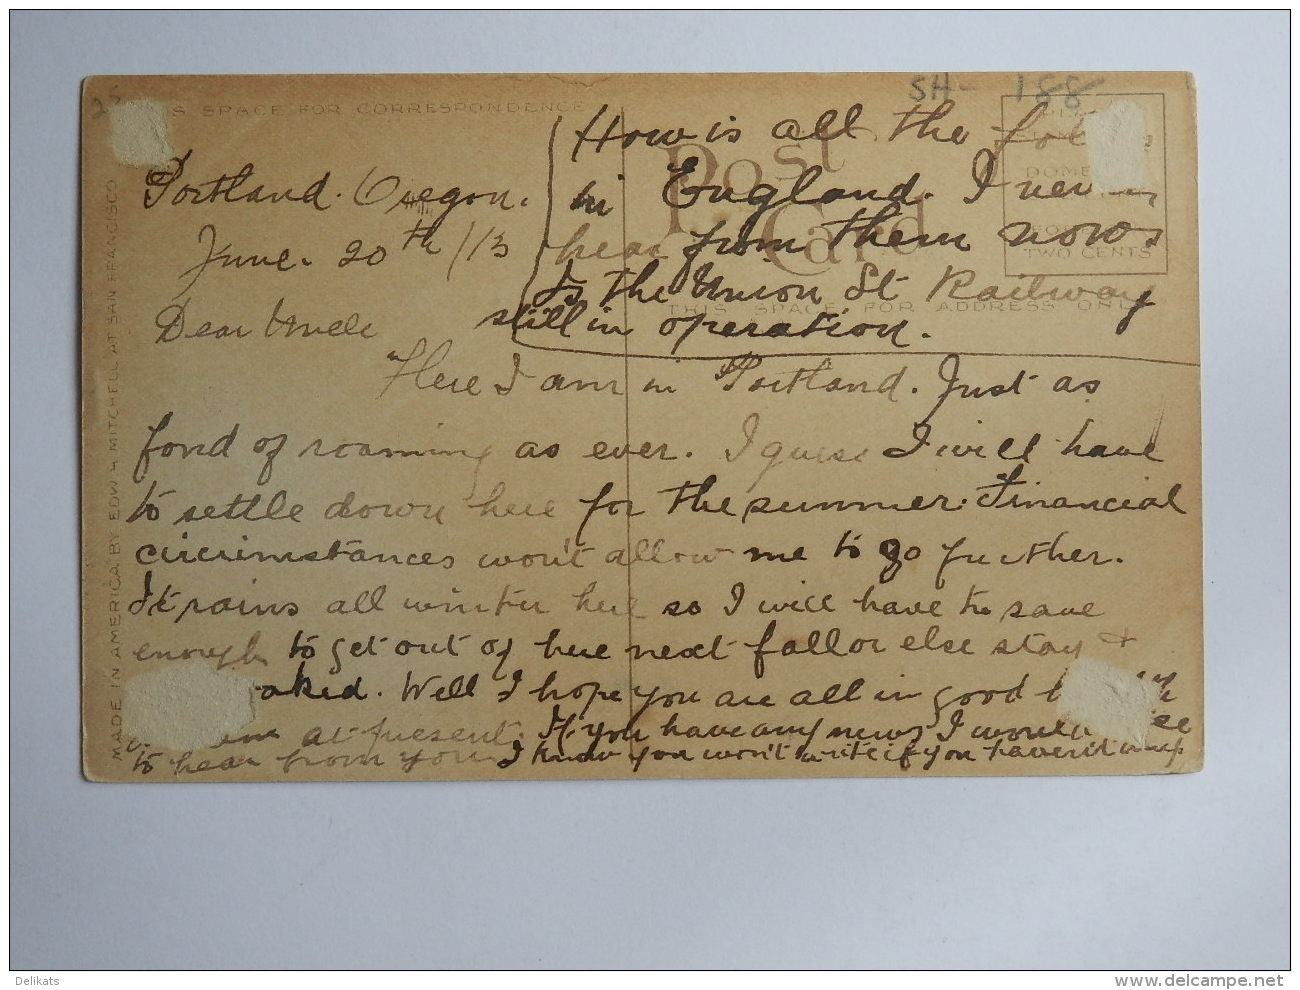 SH- 188
25
IS SPACE FOR CORRESPONDENCE
Post
Card
DOME
TWO CENTS
THIS SPACE FOR ADDRESS ONLY
MADE IN AMERICA BY EDW. H. MITCHELL AT SAN FRANCISCO
Portland. Oregon.
June. 20th /13
Dear Uncle
Here I am in Portland. Just as
fond of roaming as ever. I guess I will have
to settle down here for the summer. Financial
circumstances won't allow me to go further.
It rains all winter here so I will have to save
enough to get out of here next fall or else stay &
oaked. Well I hope you are all in good
am at present. If you have any news I would
to hear from you. I know you won't write if you haven't any
How is all the fol
in England. I never
hear from them now.
Is the Union St Railway
still in operation.
Delikats
www.delcampe.net